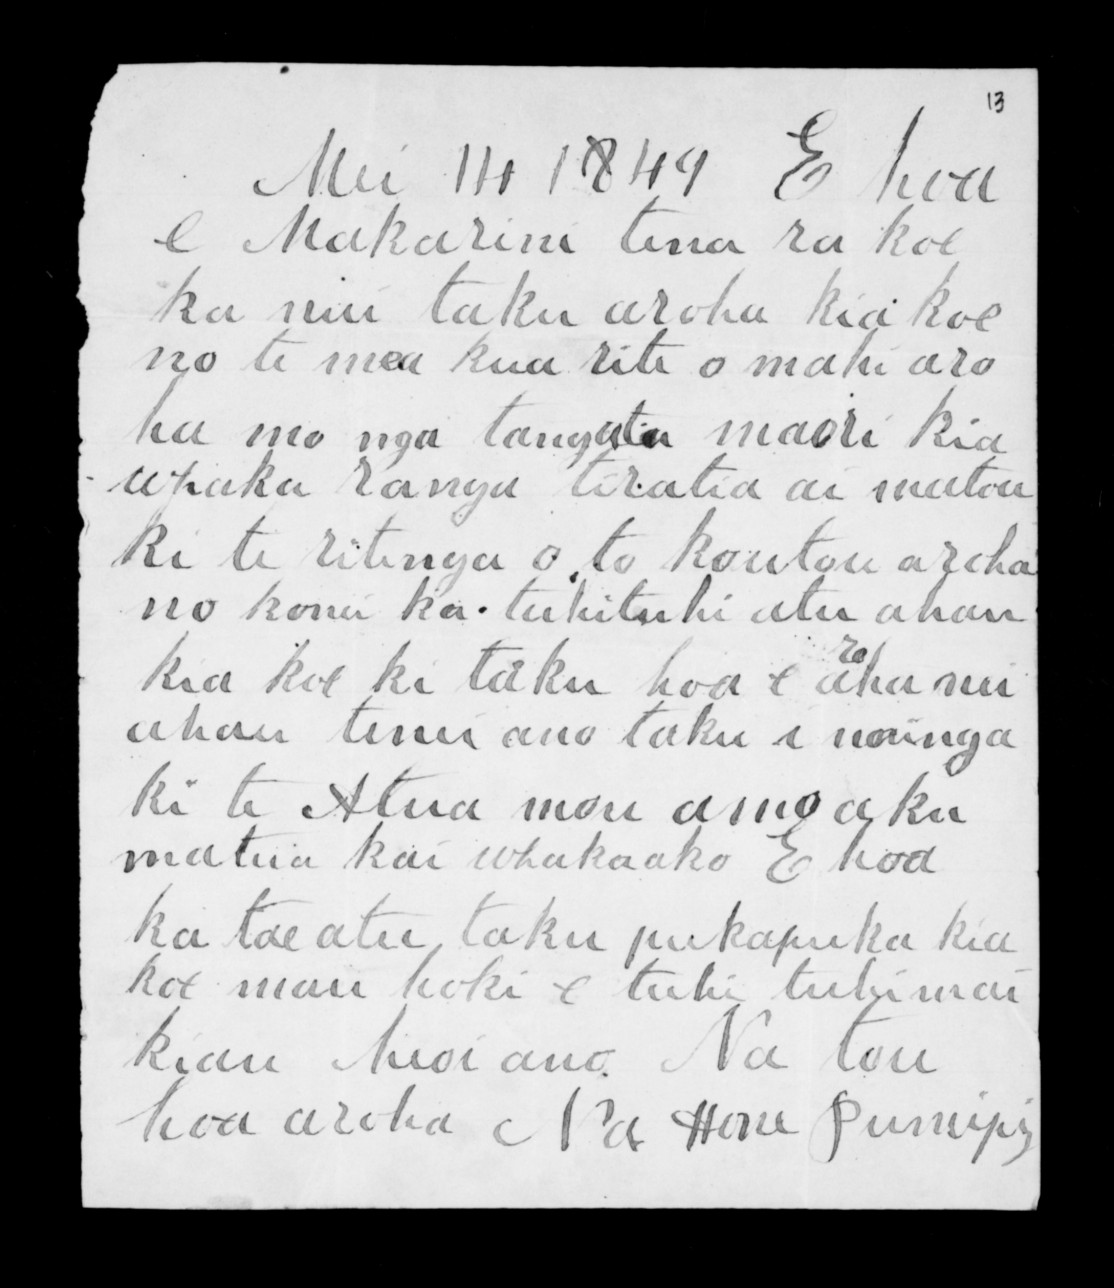 13
Mei 14 1849 E hoa
e Makarini tena ra koe
ka nui taku aroha kia koe
no te mea kua rite o mahi aro
ha mo nga tangata maori kia
wpaka ranga tiratia ai matou
ki te ritenga o to koutou aroha
no konei ka tuhituhi atu ahau
kia koe ki taku hoa e aroha nui
ahau tenei ano taku i noinga
ki te Atua mou amo aku
matua kai whakaako E hoa
ka tae atu taku pukapuka kia
koe mau hoki e tuhi tuhi mai
kiau heoi ano Na tou
hoa aroha Na Hone